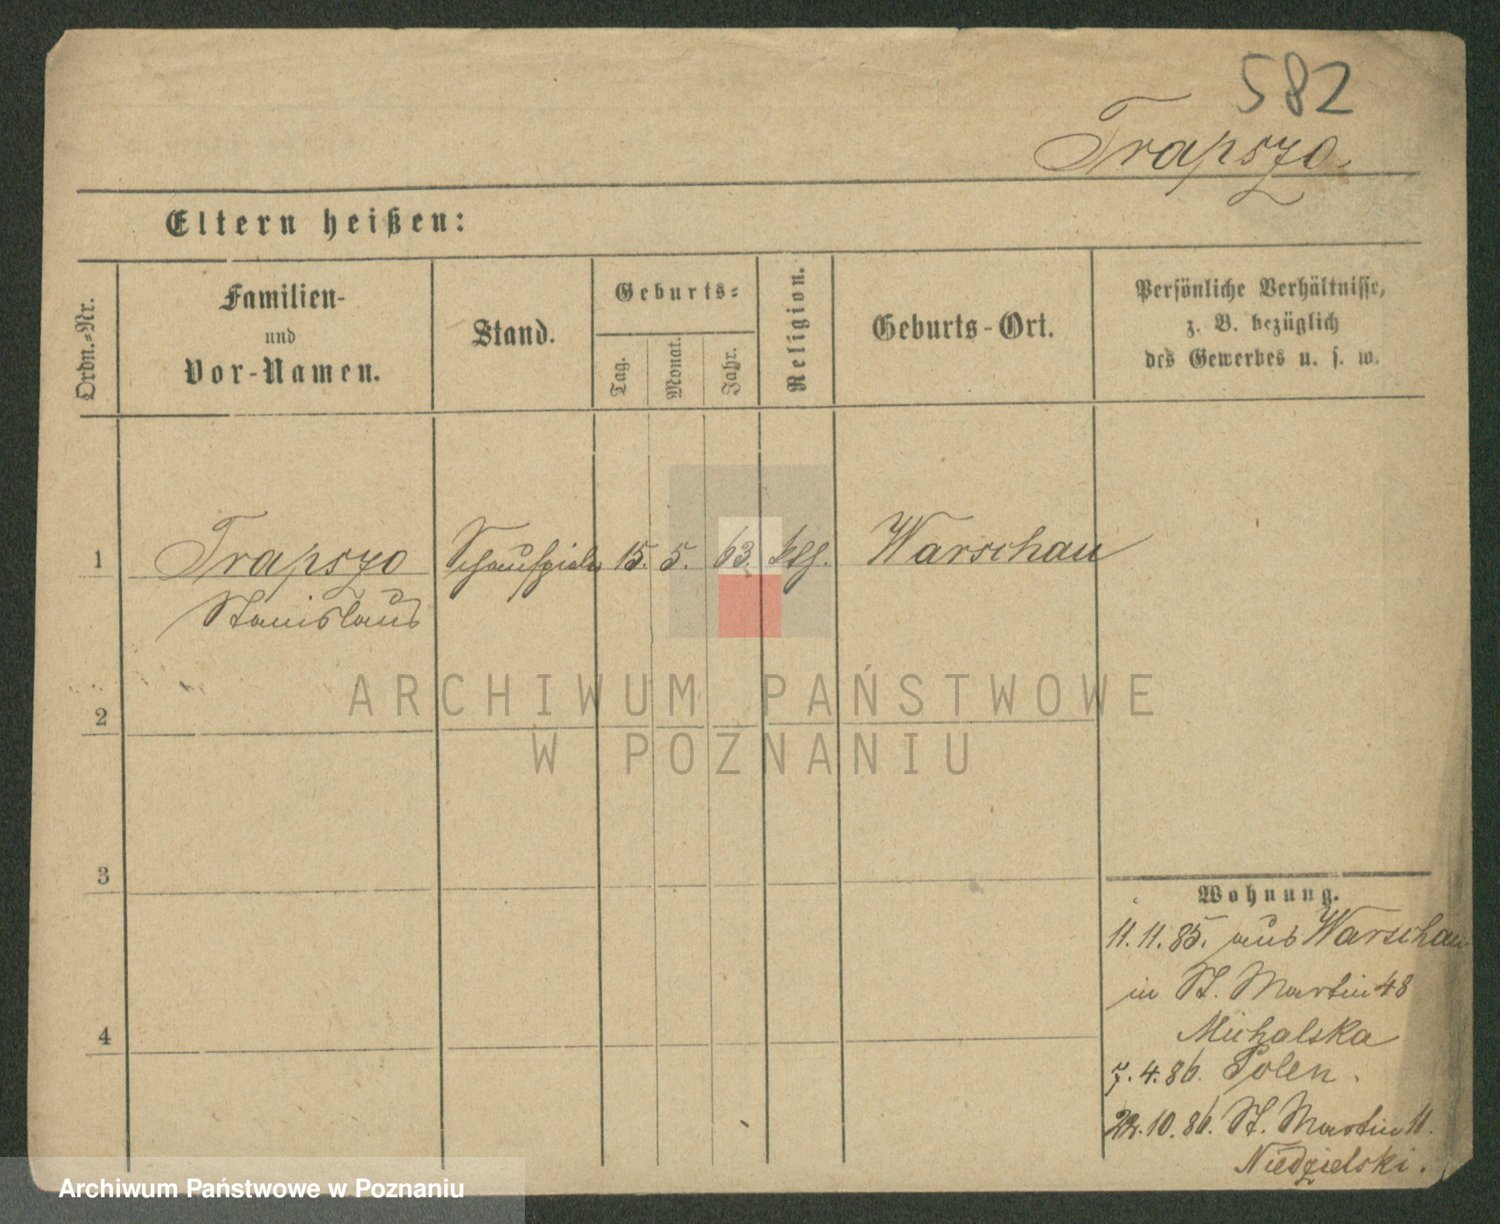 582
Trapszo.
Eltern heißen:
Ordn.-Nr.
Familien-
und
Vor-Namen.
Stand.
Geburts-
Tag.
Monat.
Jahr.
Religion.
Geburts-Ort.
Persönliche Verhältnisse,
z. B. bezüglich
des Gewerbes u. s. w.
1 Trapszo Schauspieler 15. 5. 63. kth. Warschau
Stanislaus
2
3
4
Wohnung.
11.11.85. aus Warschau
in St. Martin 48
Michalska
7.4.86. Polen.
22.10.86. St. Martin 11.
Niedzielski.
ARCHIWUM PAŃSTWOWE
W POZNANIU
Archiwum Państwowe w Poznaniu